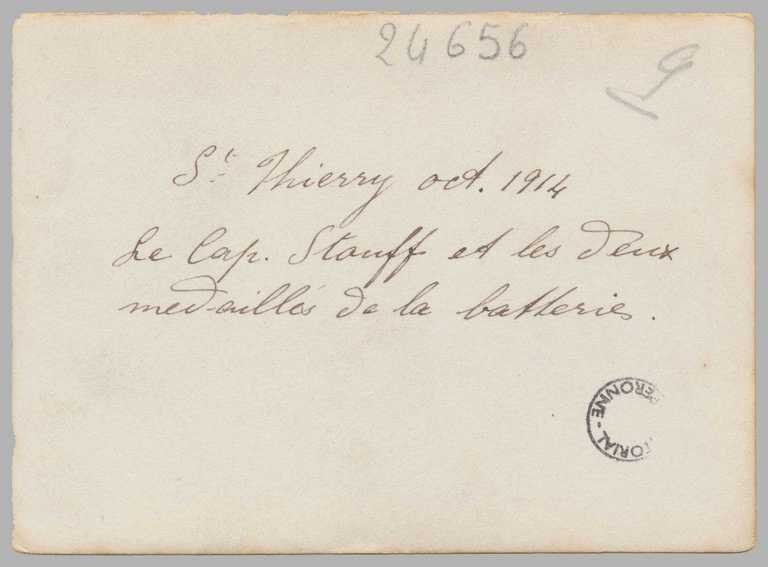 24656
St. Thierry oct. 1914
Le Cap. Stouff et les deux
medaillés de la batterie.
PERONNE -